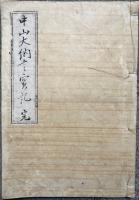 中山大納言実記 完